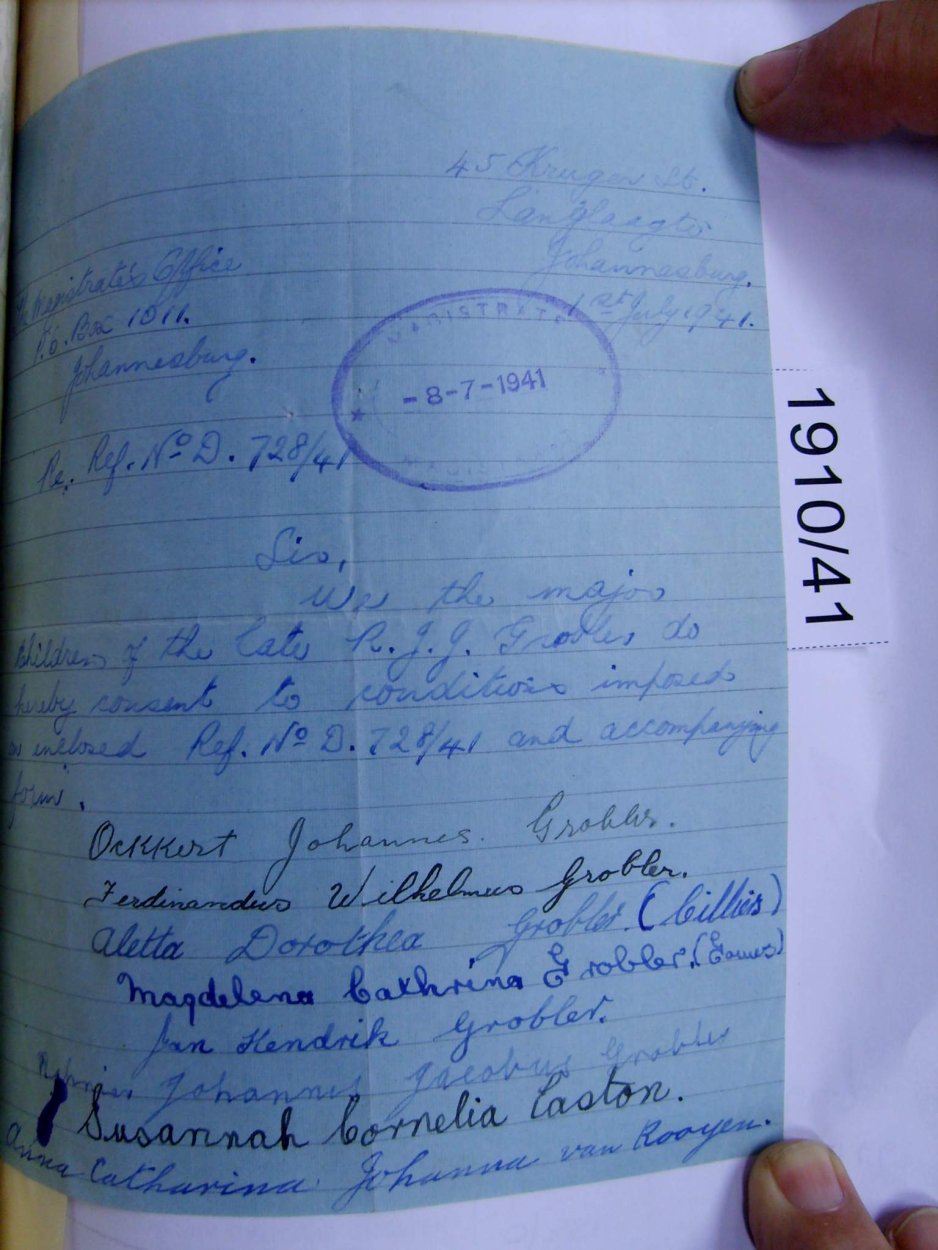 45 Kruger St.
Langlaagte
Johannesburg.
1st July 1941.
The Magistrate's Office
P.O. Box 1011.
Johannesburg.
MAGISTRATE
-8-7-1941
MAGISTRAAT
Re. Ref. No D. 728/41
Sir,
We the major
children of the late R. J. J. Grobler do
hereby consent to conditions imposed
on inclosed Ref. No D. 728/41 and accompanying
form.
Ockkert Johannes. Grobler.
Ferdinandus Wilhelmus Grobler.
Aletta Dorothea Grobler. (Cillies)
Magdelena Cathrina Grobler.
Jan Hendrik Grobler.
Johannes Jacobus Grobler
Susannah Cornelia Easton.
Anna Catharina Johanna van Rooyen.
1910/41